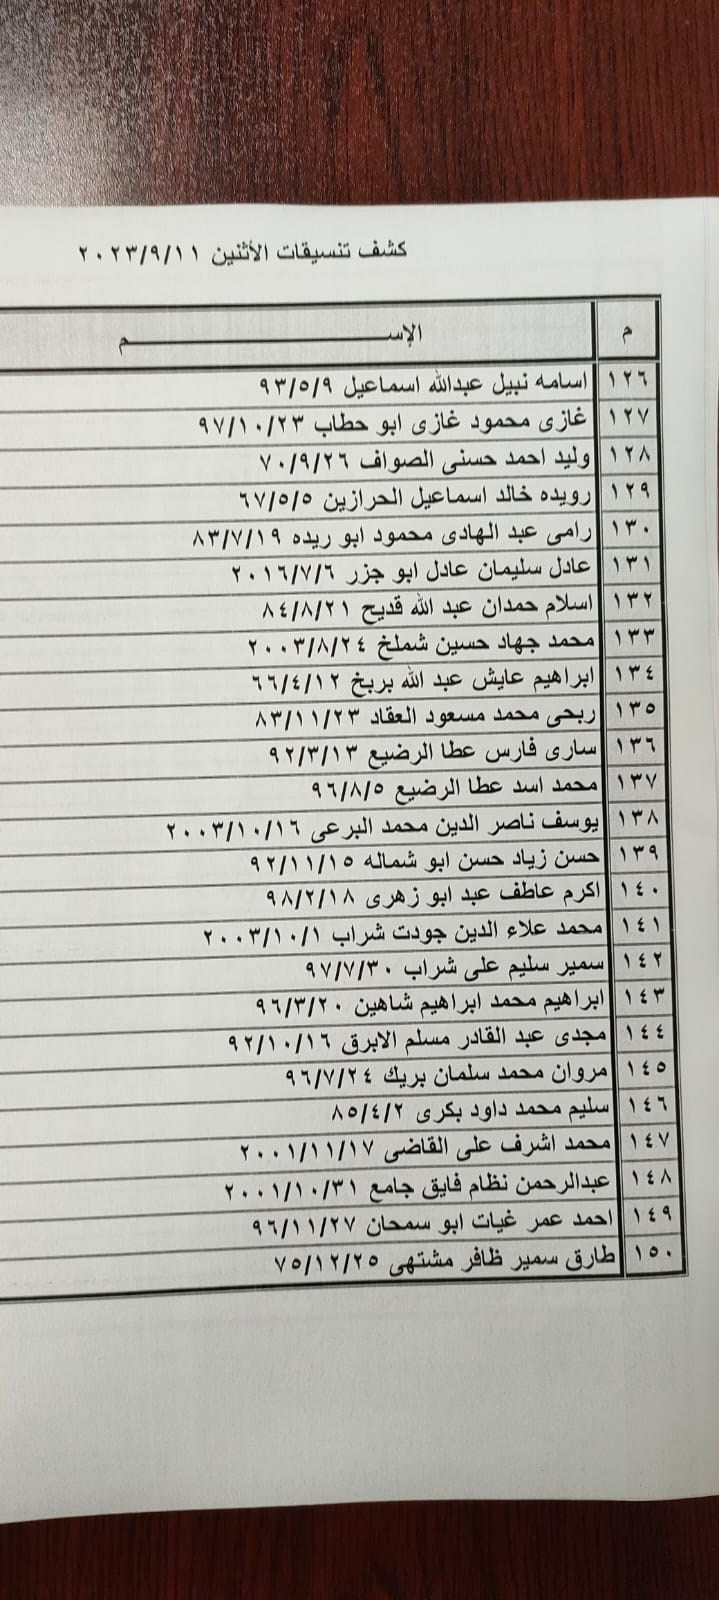 كشف تنسيقات الأثنين ٢٠٢٣/٩/١١
م الإســـــم
١٢٦ اسامه نبيل عبدالله اسماعيل ٩٣/٥/٩
١٢٧ غازى محمود غازى ابو حطاب ٩٧/١٠/٢٣
١٢٨ وليد احمد حسنى الصواف ٧٠/٩/٢٦
١٢٩ رويده خالد اسماعيل الحرازين ٦٧/٥/٥
١٣٠ رامى عبد الهادى محمود ابو ريده ٨٣/٧/١٩
١٣١ عادل سليمان عادل ابو جزر ٢٠١٦/٧/٦
١٣٢ اسلام حمدان عبد الله قديح ٨٤/٨/٢١
١٣٣ محمد جهاد حسين شملخ ٢٠٠٣/٨/٢٤
١٣٤ ابراهيم عايش عبد الله بربخ ٦٦/٤/١٢
١٣٥ ربحى محمد مسعود العقاد ٨٣/١١/٢٣
١٣٦ سارى فارس عطا الرضيع ٩٢/٣/١٣
١٣٧ محمد اسد عطا الرضيع ٩٦/٨/٥
١٣٨ يوسف ناصر الدين محمد البرعى ٢٠٠٣/١٠/١٦
١٣٩ حسن زياد حسن ابو شماله ٩٢/١١/١٥
١٤٠ اكرم عاطف عبد ابو زهرى ٩٨/٢/١٨
١٤١ محمد علاء الدين جودت شراب ٢٠٠٣/١٠/١
١٤٢ سمير سليم على شراب ٩٧/٧/٣٠
١٤٣ ابراهيم محمد ابراهيم شاهين ٩٦/٣/٢٠
١٤٤ مجدى عبد القادر مسلم الابرق ٩٢/١٠/١٦
١٤٥ مروان محمد سلمان بريك ٩٦/٧/٢٤
١٤٦ سليم محمد داود بكرى ٨٥/٤/٢
١٤٧ محمد اشرف على القاضى ٢٠٠١/١١/١٧
١٤٨ عبدالرحمن نظام فايق جامع ٢٠٠١/١٠/٣١
١٤٩ احمد عمر غيات ابو سمحان ٩٦/١١/٢٧
١٥٠ طارق سمير ظافر مشتهى ٧٥/١٢/٢٥